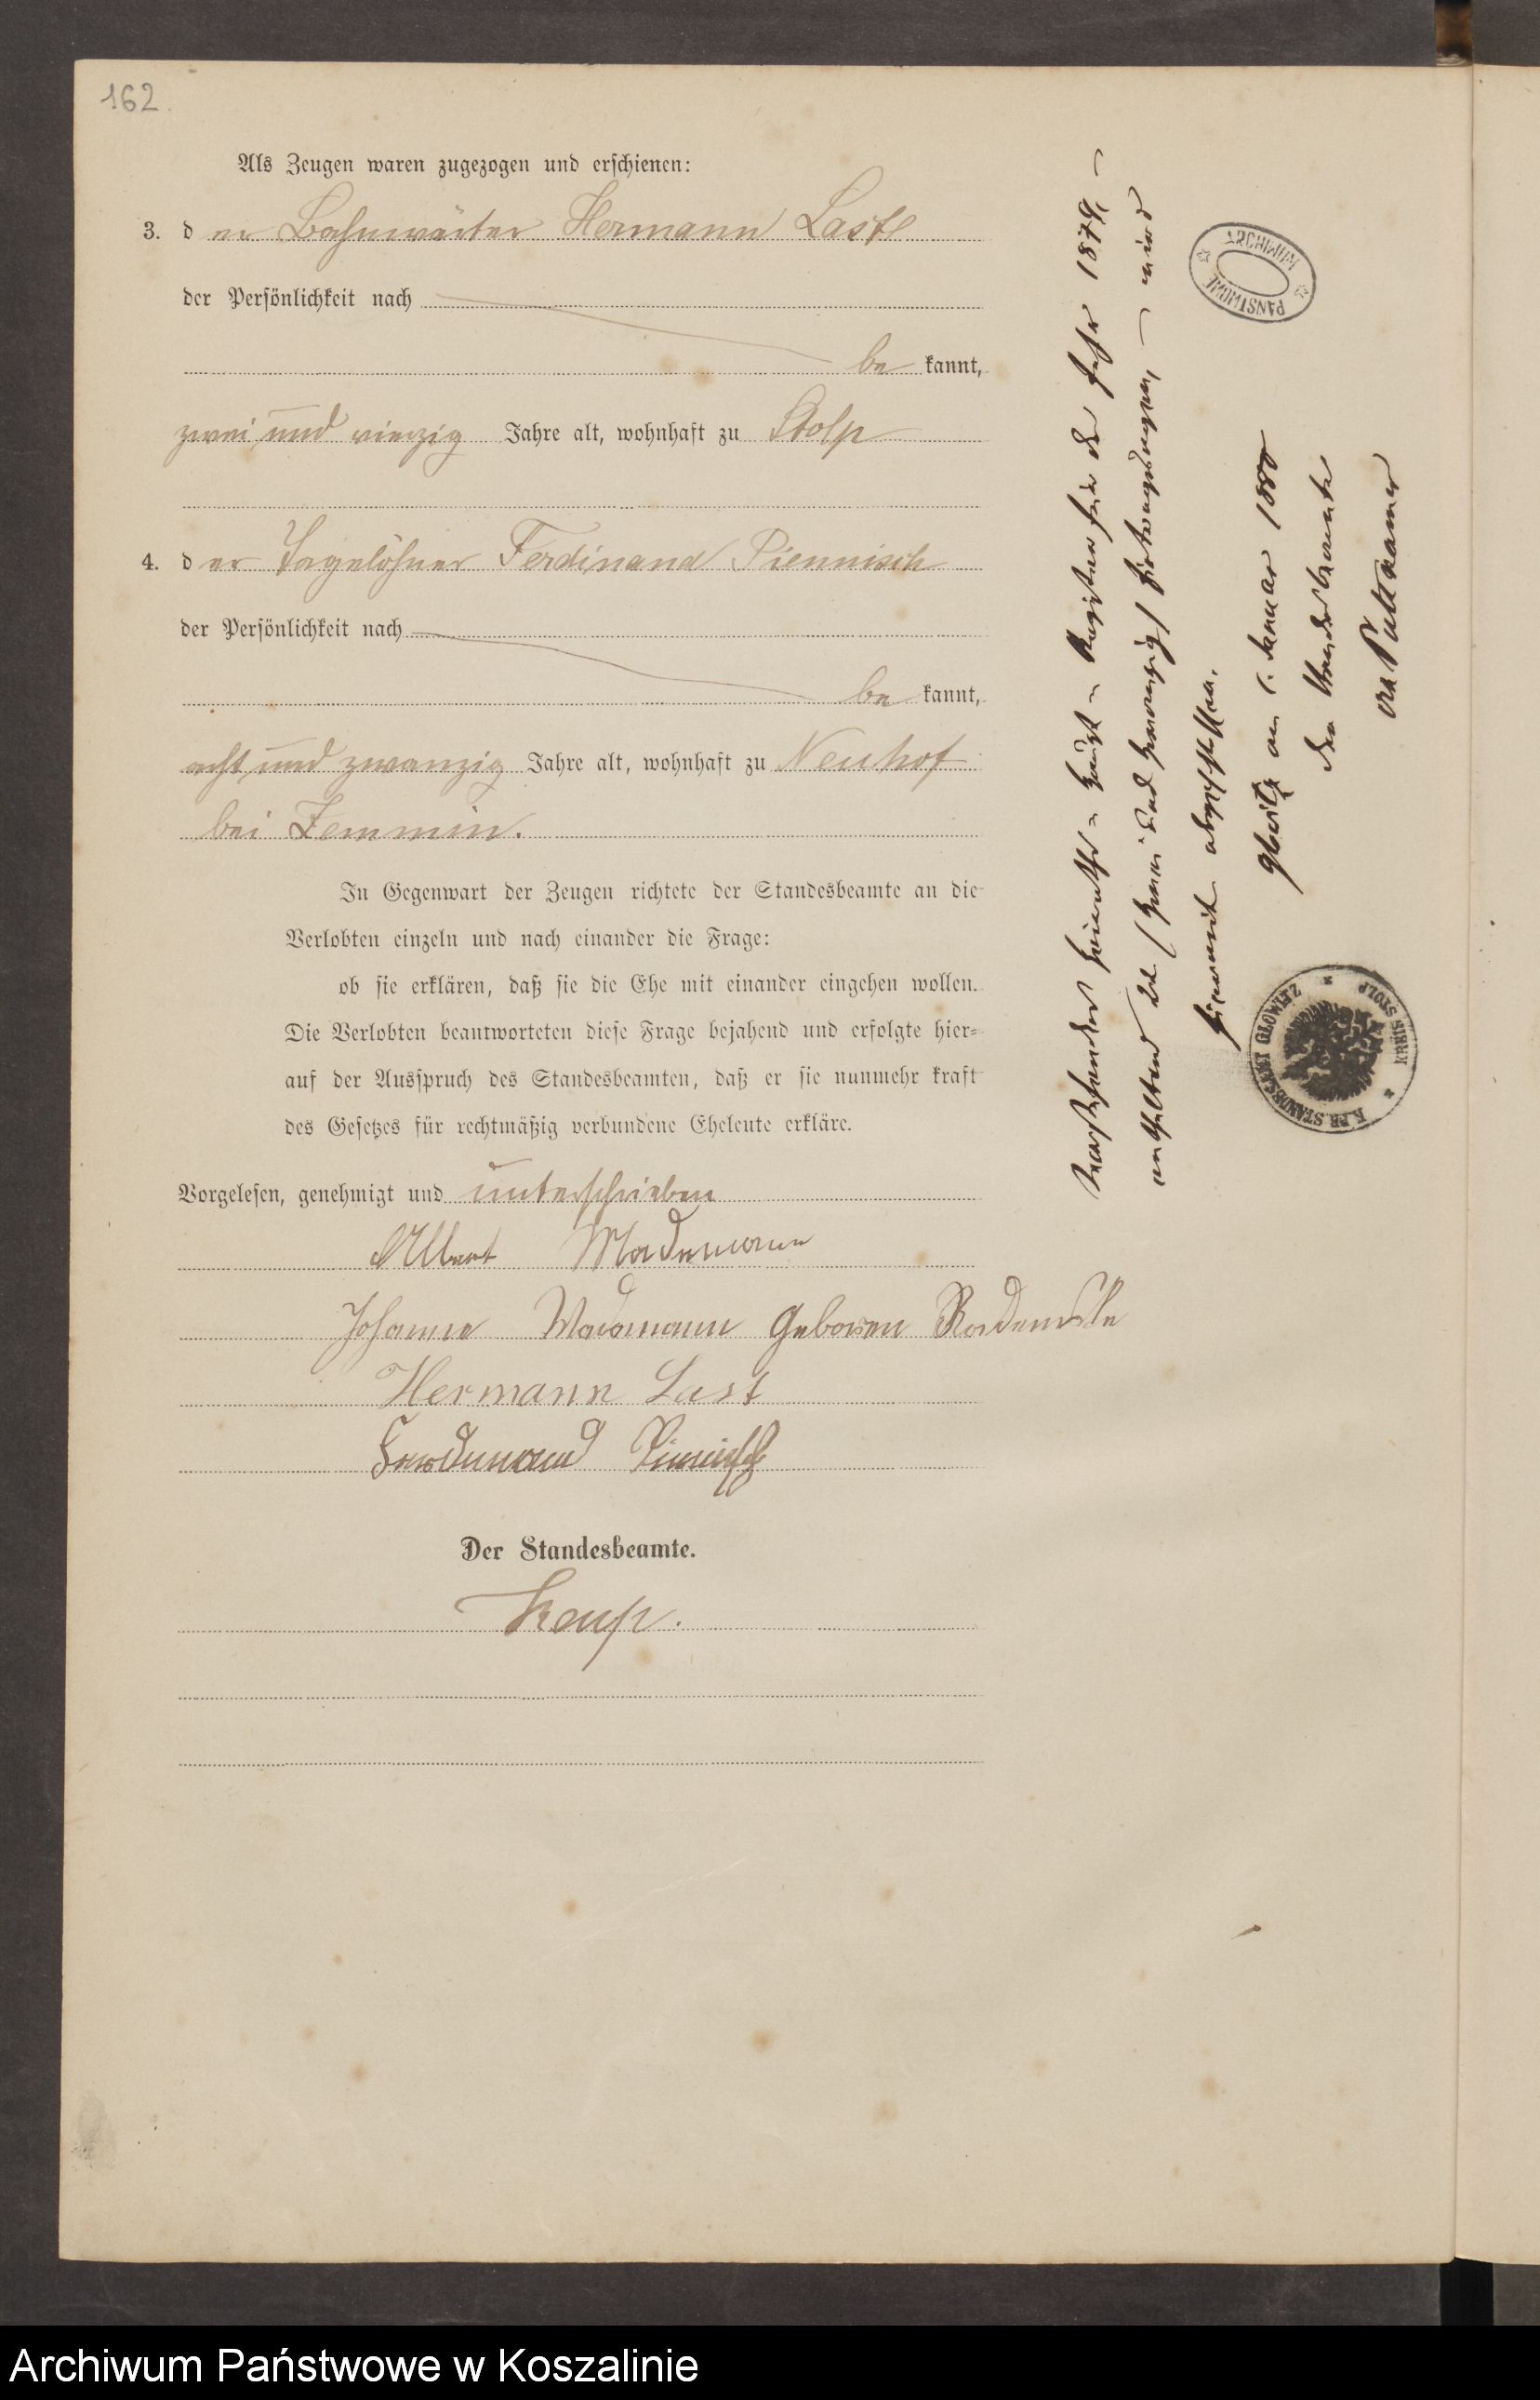 162.
Als Zeugen waren zugezogen und erschienen:
3. der Bahnwärter Hermann Last
der Persönlichkeit nach
be kannt,
zwei und vierzig Jahre alt, wohnhaft zu Stolp
4. der Tagelöhner Ferdinand Piennisch
der Persönlichkeit nach
be kannt,
acht und zwanzig Jahre alt, wohnhaft zu Neuhof
bei Zemmin.
In Gegenwart der Zeugen richtete der Standesbeamte an die
Verlobten einzeln und nach einander die Frage:
ob sie erklären, daß sie die Ehe mit einander eingehen wollen.
Die Verlobten beantworteten diese Frage bejahend und erfolgte hier-
auf der Ausspruch des Standesbeamten, daß er sie nunmehr kraft
des Gesetzes für rechtmäßig verbundene Eheleute erkläre.
Vorgelesen, genehmigt und unterschrieben
Albert Mademann
Johanne Mademann geboren
Hermann Last
Ferdinand Piennisch
Der Standesbeamte.
Kaup.
Vorstehendes Heiraths-Haupt-Register für das Jahr 1879,
enthaltend 22 (zwei und zwanzig) Eintragungen, wird
hiermit abgeschlossen.
Glowitz am 1. Januar 1880
Der Standesbeamte
von Puttkamer
ARCHIWUM PAŃSTWOWE
K. PR. STANDESAMT GLOWITZ
KREIS STOLP
Archiwum Państwowe w Koszalinie